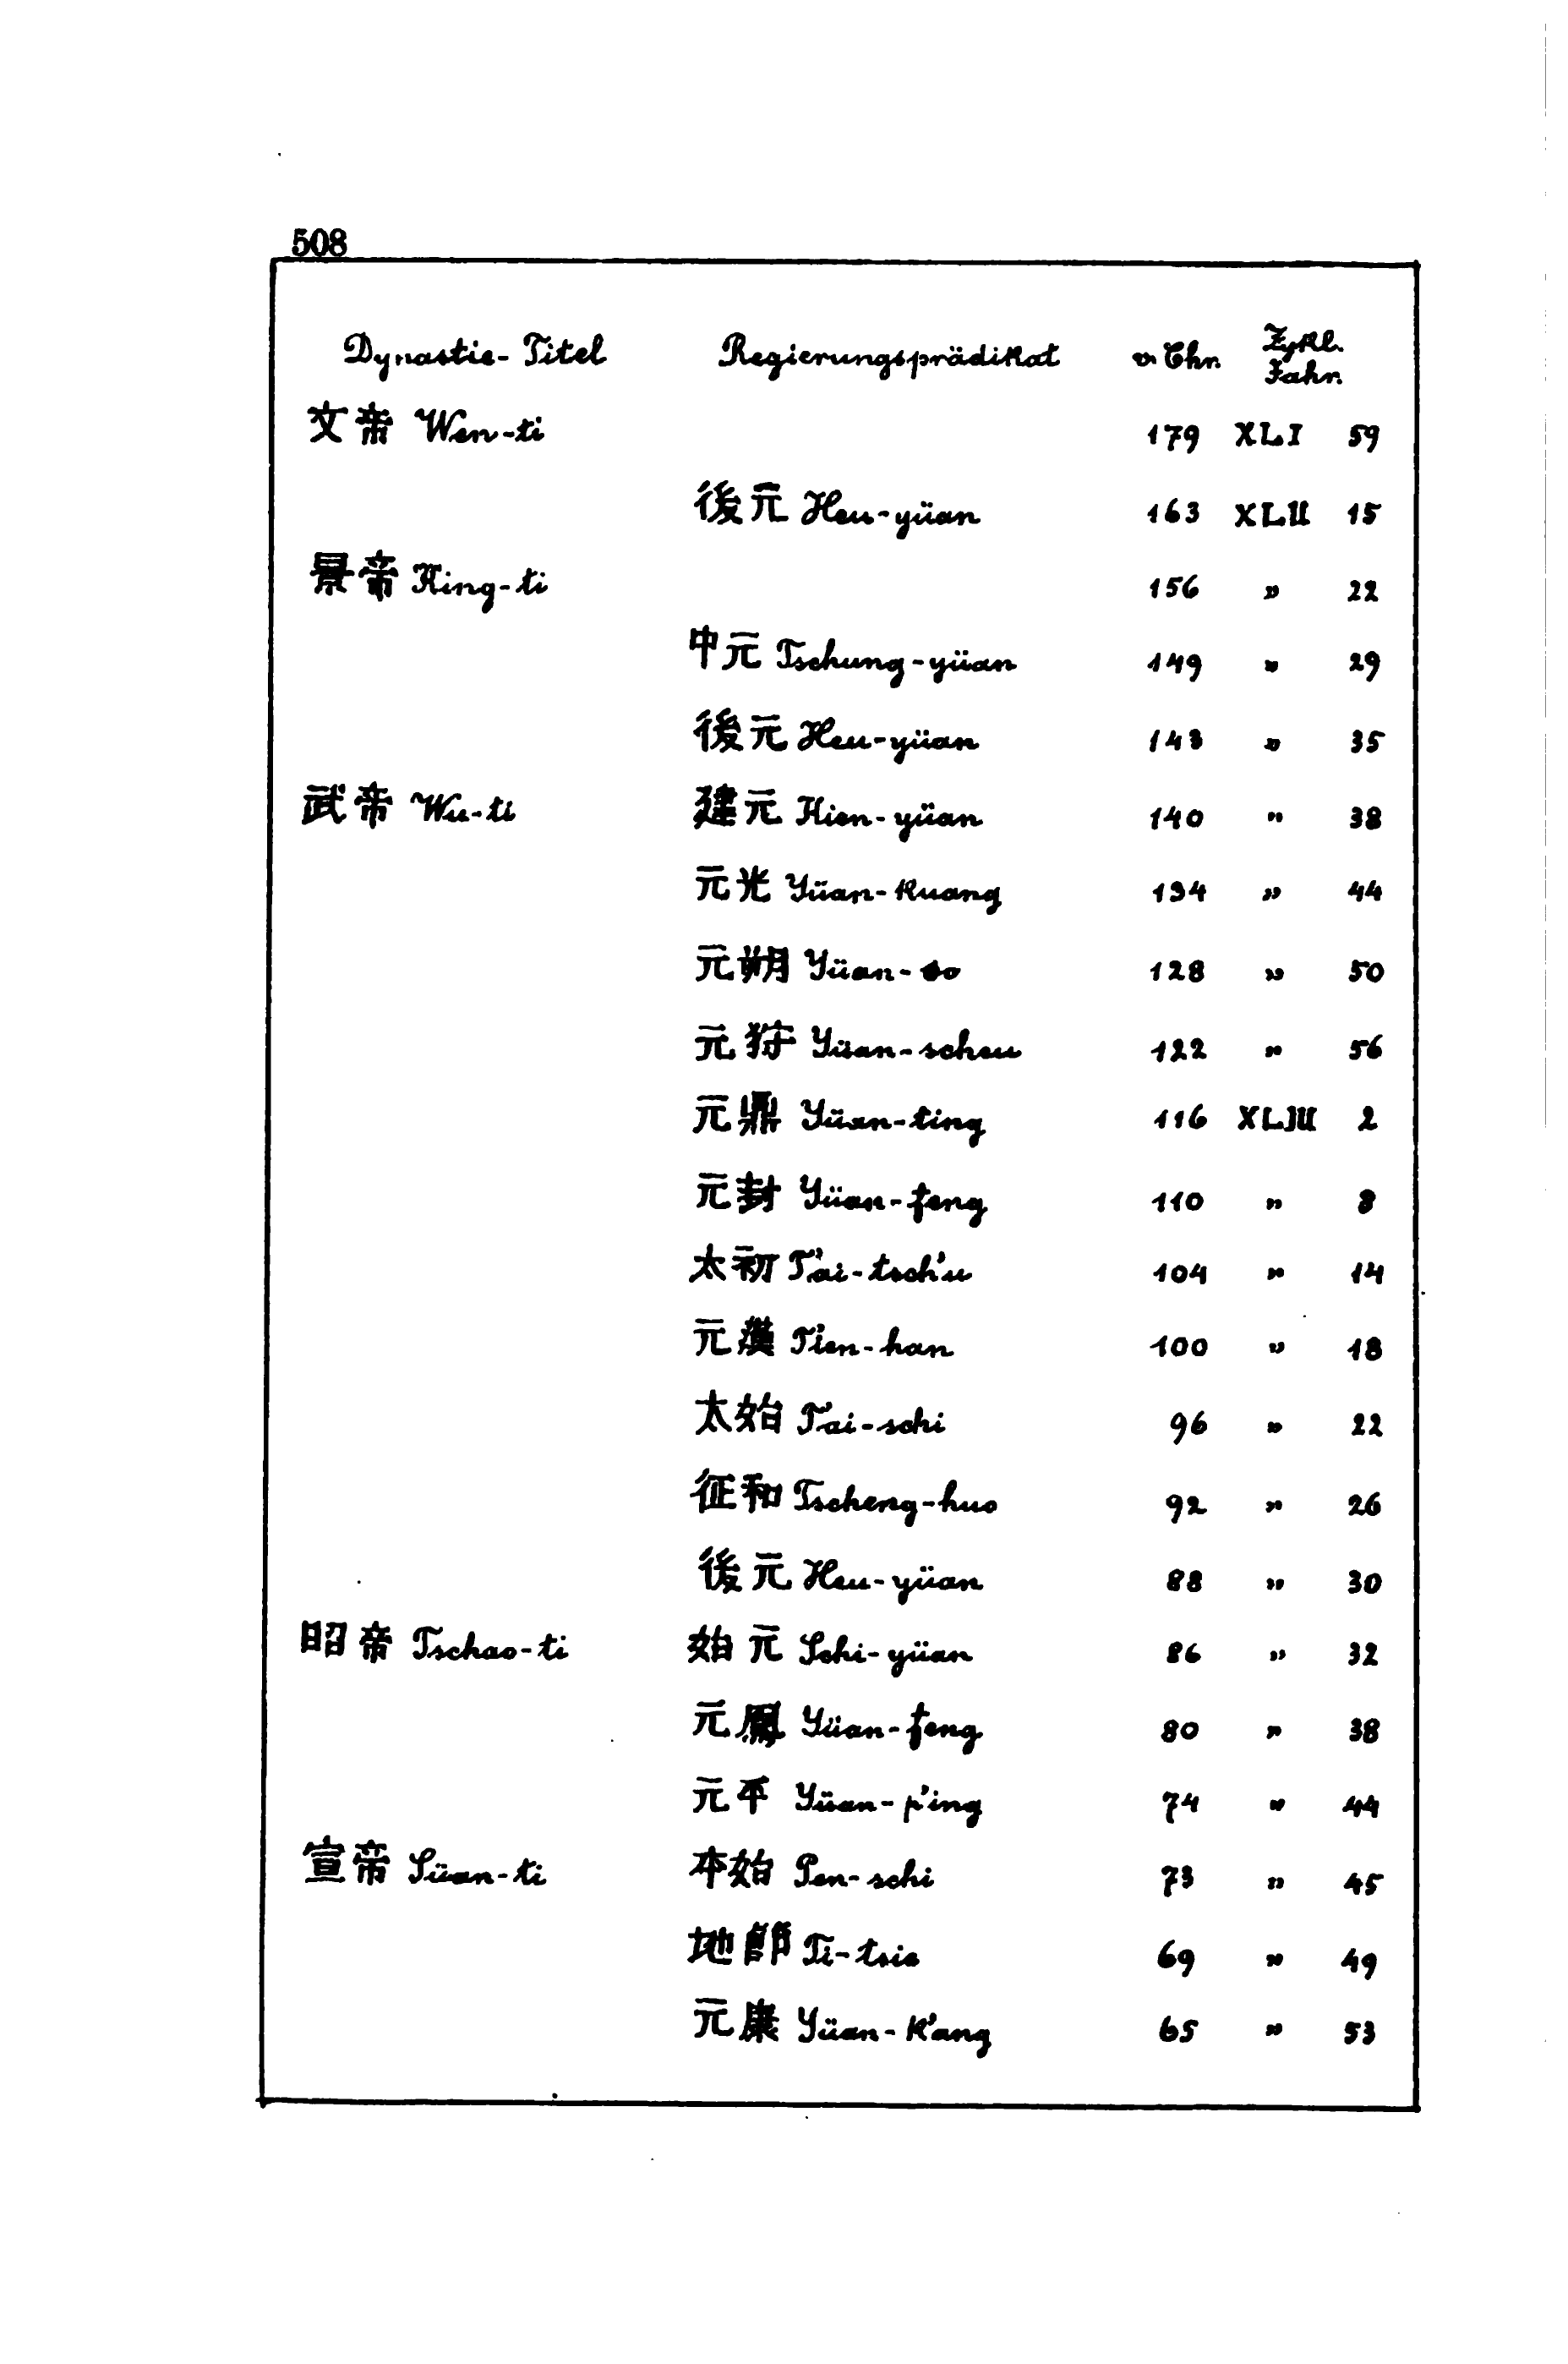 508
Dynastie-Titel Regierungsprädikat v. Chr. Zykl. Jahr.
文帝 Wen-ti 179 XLI 59
後元 Heu-yüan 163 XLII 15
景帝 King-ti 156 " 22
中元 Tschung-yüan 149 " 29
後元 Heu-yüan 143 " 35
武帝 Wu-ti 建元 Kien-yüan 140 " 38
元光 Yüan-kuang 134 " 44
元朔 Yüan-so 128 " 50
元狩 Yüan-scheu 122 " 56
元鼎 Yüan-ting 116 XLIII 2
元封 Yüan-feng 110 " 8
太初 T'ai-tsch'u 104 " 14
元漢 T'ien-han 100 " 18
太始 T'ai-schi 96 " 22
征和 Tscheng-huo 92 " 26
後元 Heu-yüan 88 " 30
昭帝 Tschao-ti 始元 Schi-yüan 86 " 32
元鳳 Yüan-feng 80 " 38
元平 Yüan-p'ing 74 " 44
宣帝 Süan-ti 本始 Pen-schi 73 " 45
地節 Ti-tsie 69 " 49
元康 Yüan-k'ang 65 " 53